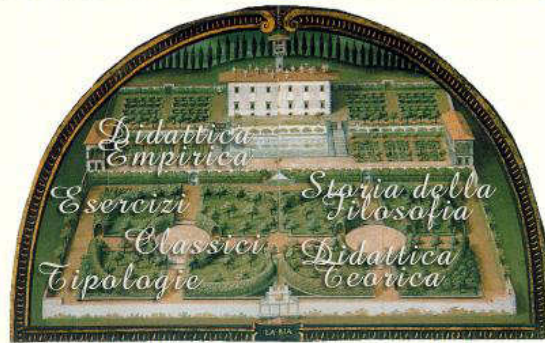 Didattica
Empirica
Esercizi
Storia della
Filosofia
Classici
Didattica
Teorica
Tipologie